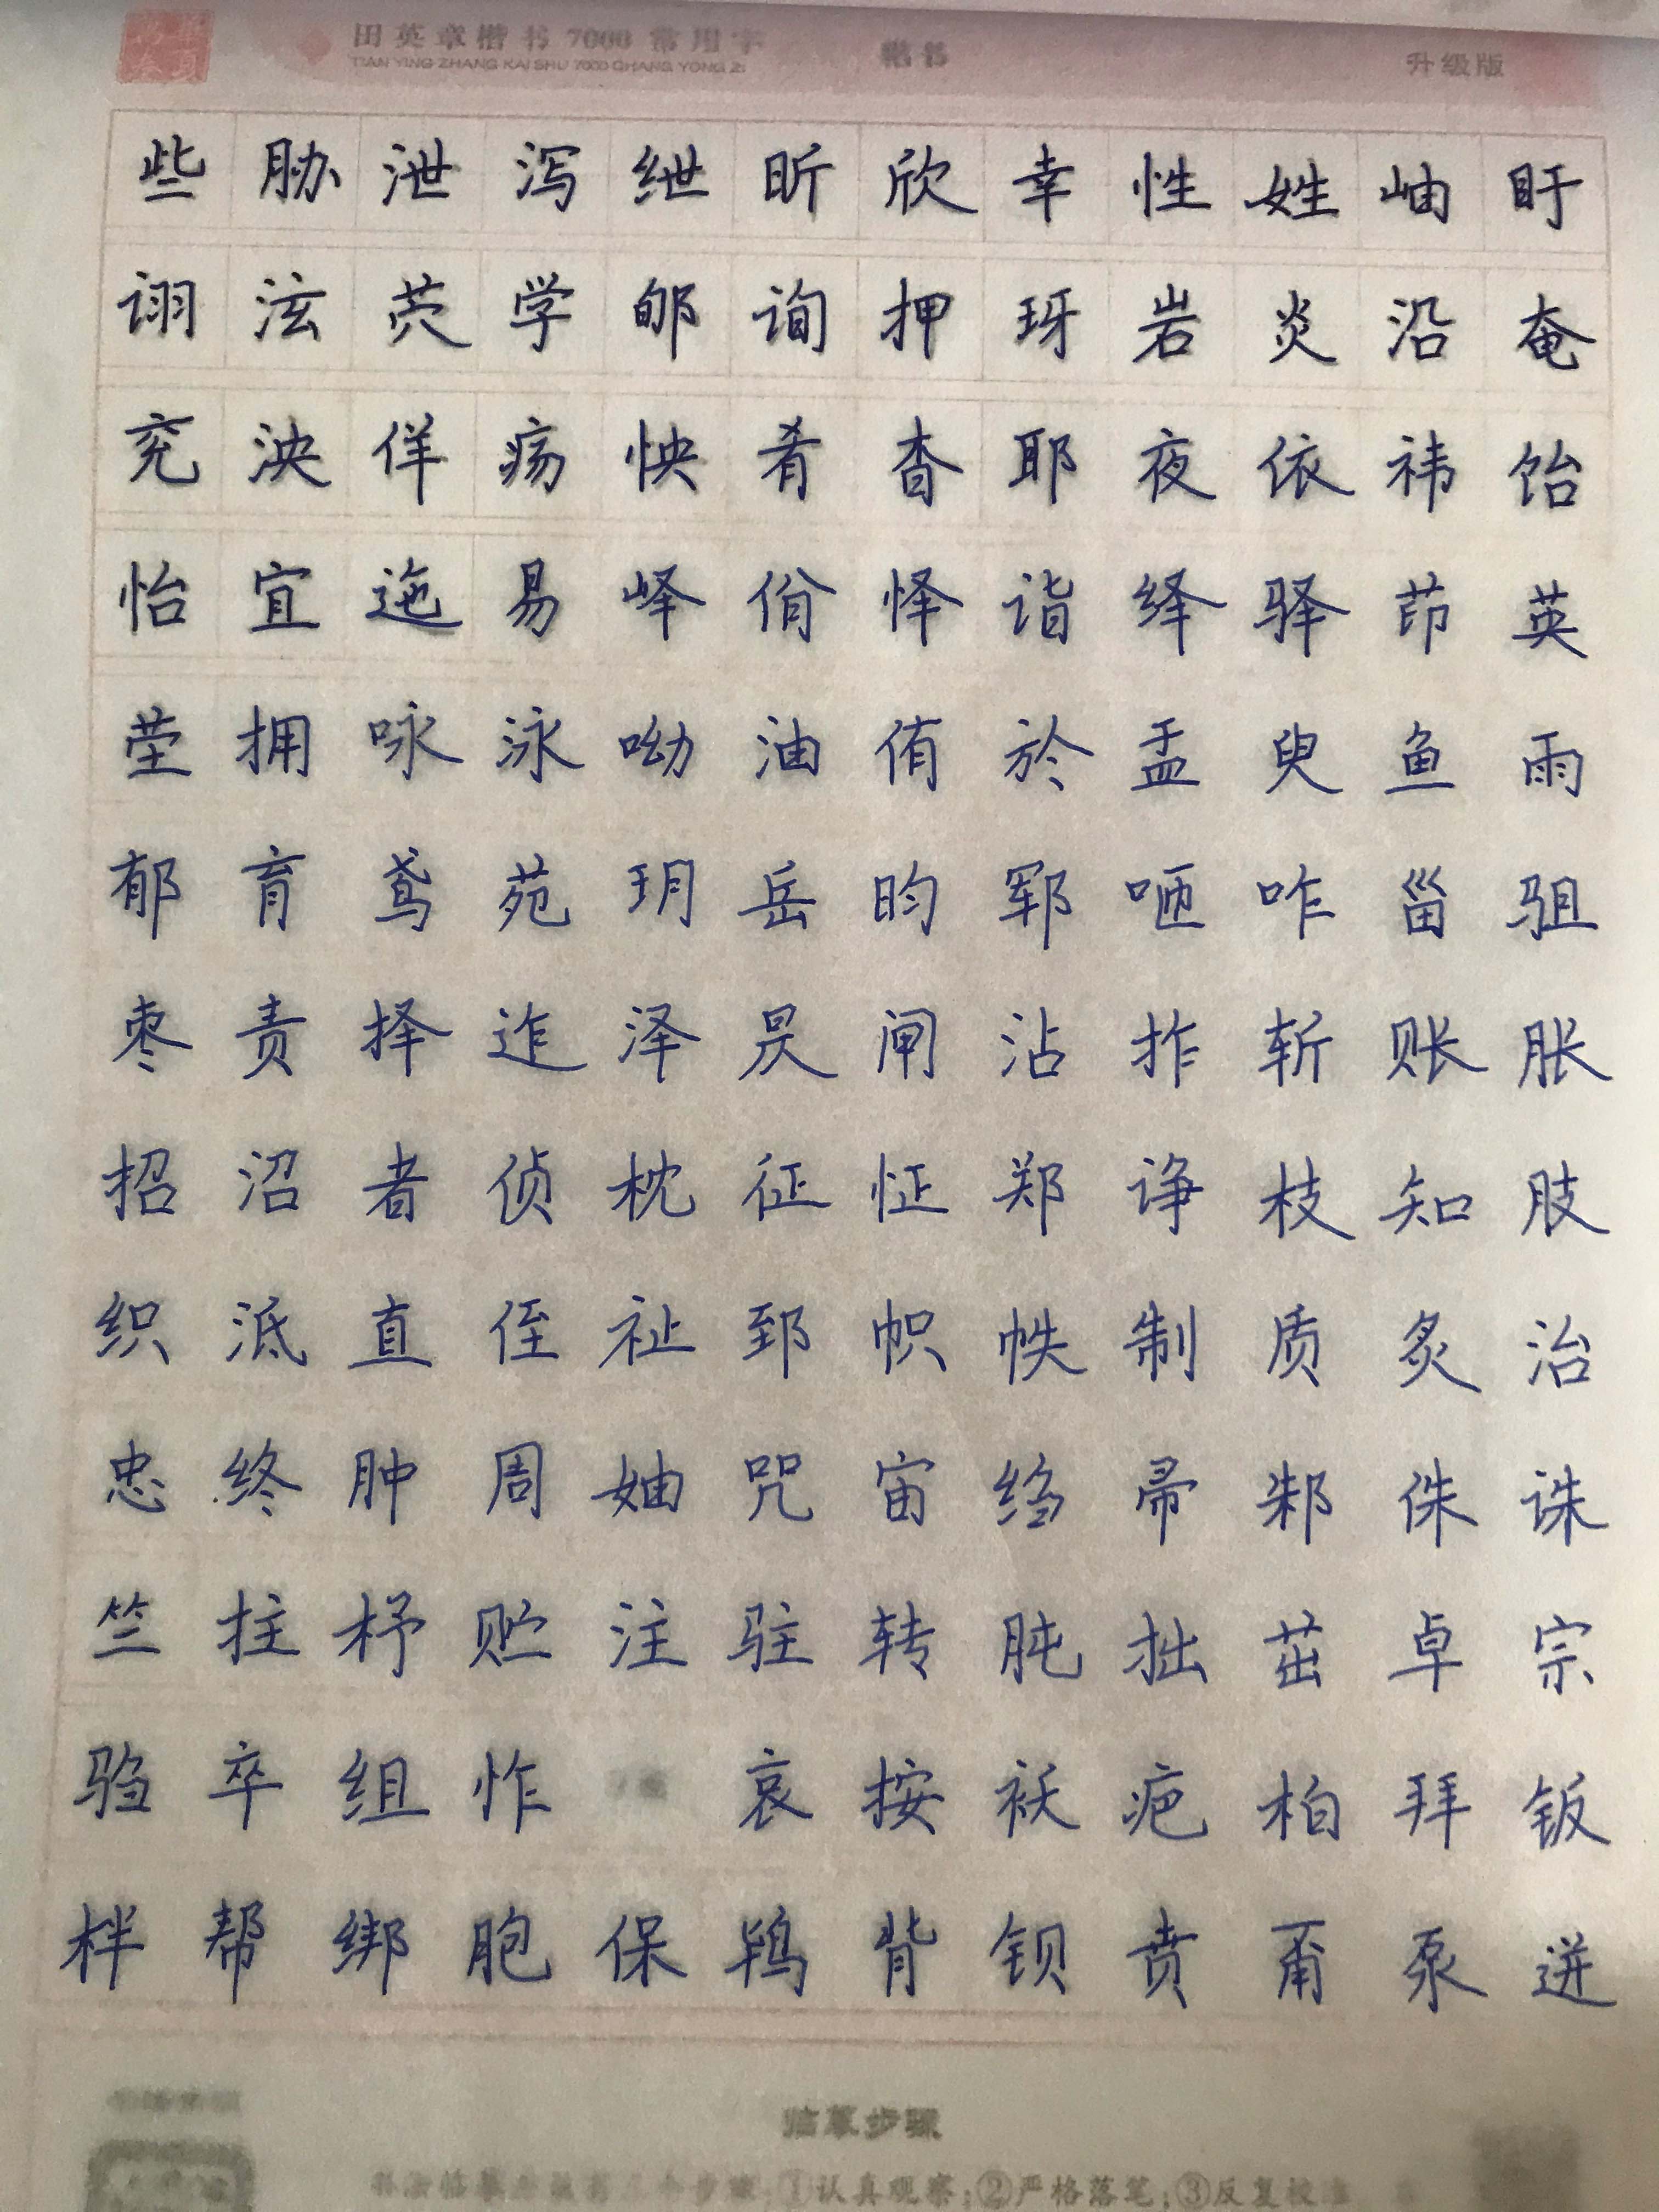 田英章楷书 7000 常用字 楷书 升级版
TIAN YING ZHANG KAI SHU 7000 CHANG YONG ZI
些 胁 泄 泻 绁 昕 欣 幸 性 姓 岫 盱
诩 泫 荧 学 郇 询 押 玡 岩 炎 沿 奄
兖 泱 佯 疡 怏 肴 杳 耶 夜 依 祎 饴
怡 宜 迤 易 峄 佾 怿 诣 绎 驿 茚 英
茔 拥 咏 泳 呦 油 侑 於 盂 臾 鱼 雨
郁 育 鸢 苑 玥 岳 昀 郓 咂 咋 甾 驵
枣 责 择 迮 泽 昃 闸 沾 拃 斩 账 胀
招 沼 者 侦 枕 征 怔 郑 诤 枝 知 肢
织 泜 直 侄 祉 郅 帜 帙 制 质 炙 治
忠 终 肿 周 妯 咒 宙 绉 帚 邾 侏 诛
竺 拄 杼 贮 注 驻 转 肫 拙 茁 卓 宗
驺 卒 组 怍 哀 按 袄 疤 柏 拜 钣
柈 帮 绑 胞 保 鸨 背 钡 贲 甭 泵 迸
临摹步骤
①认真观察；②严格落笔；③反复校